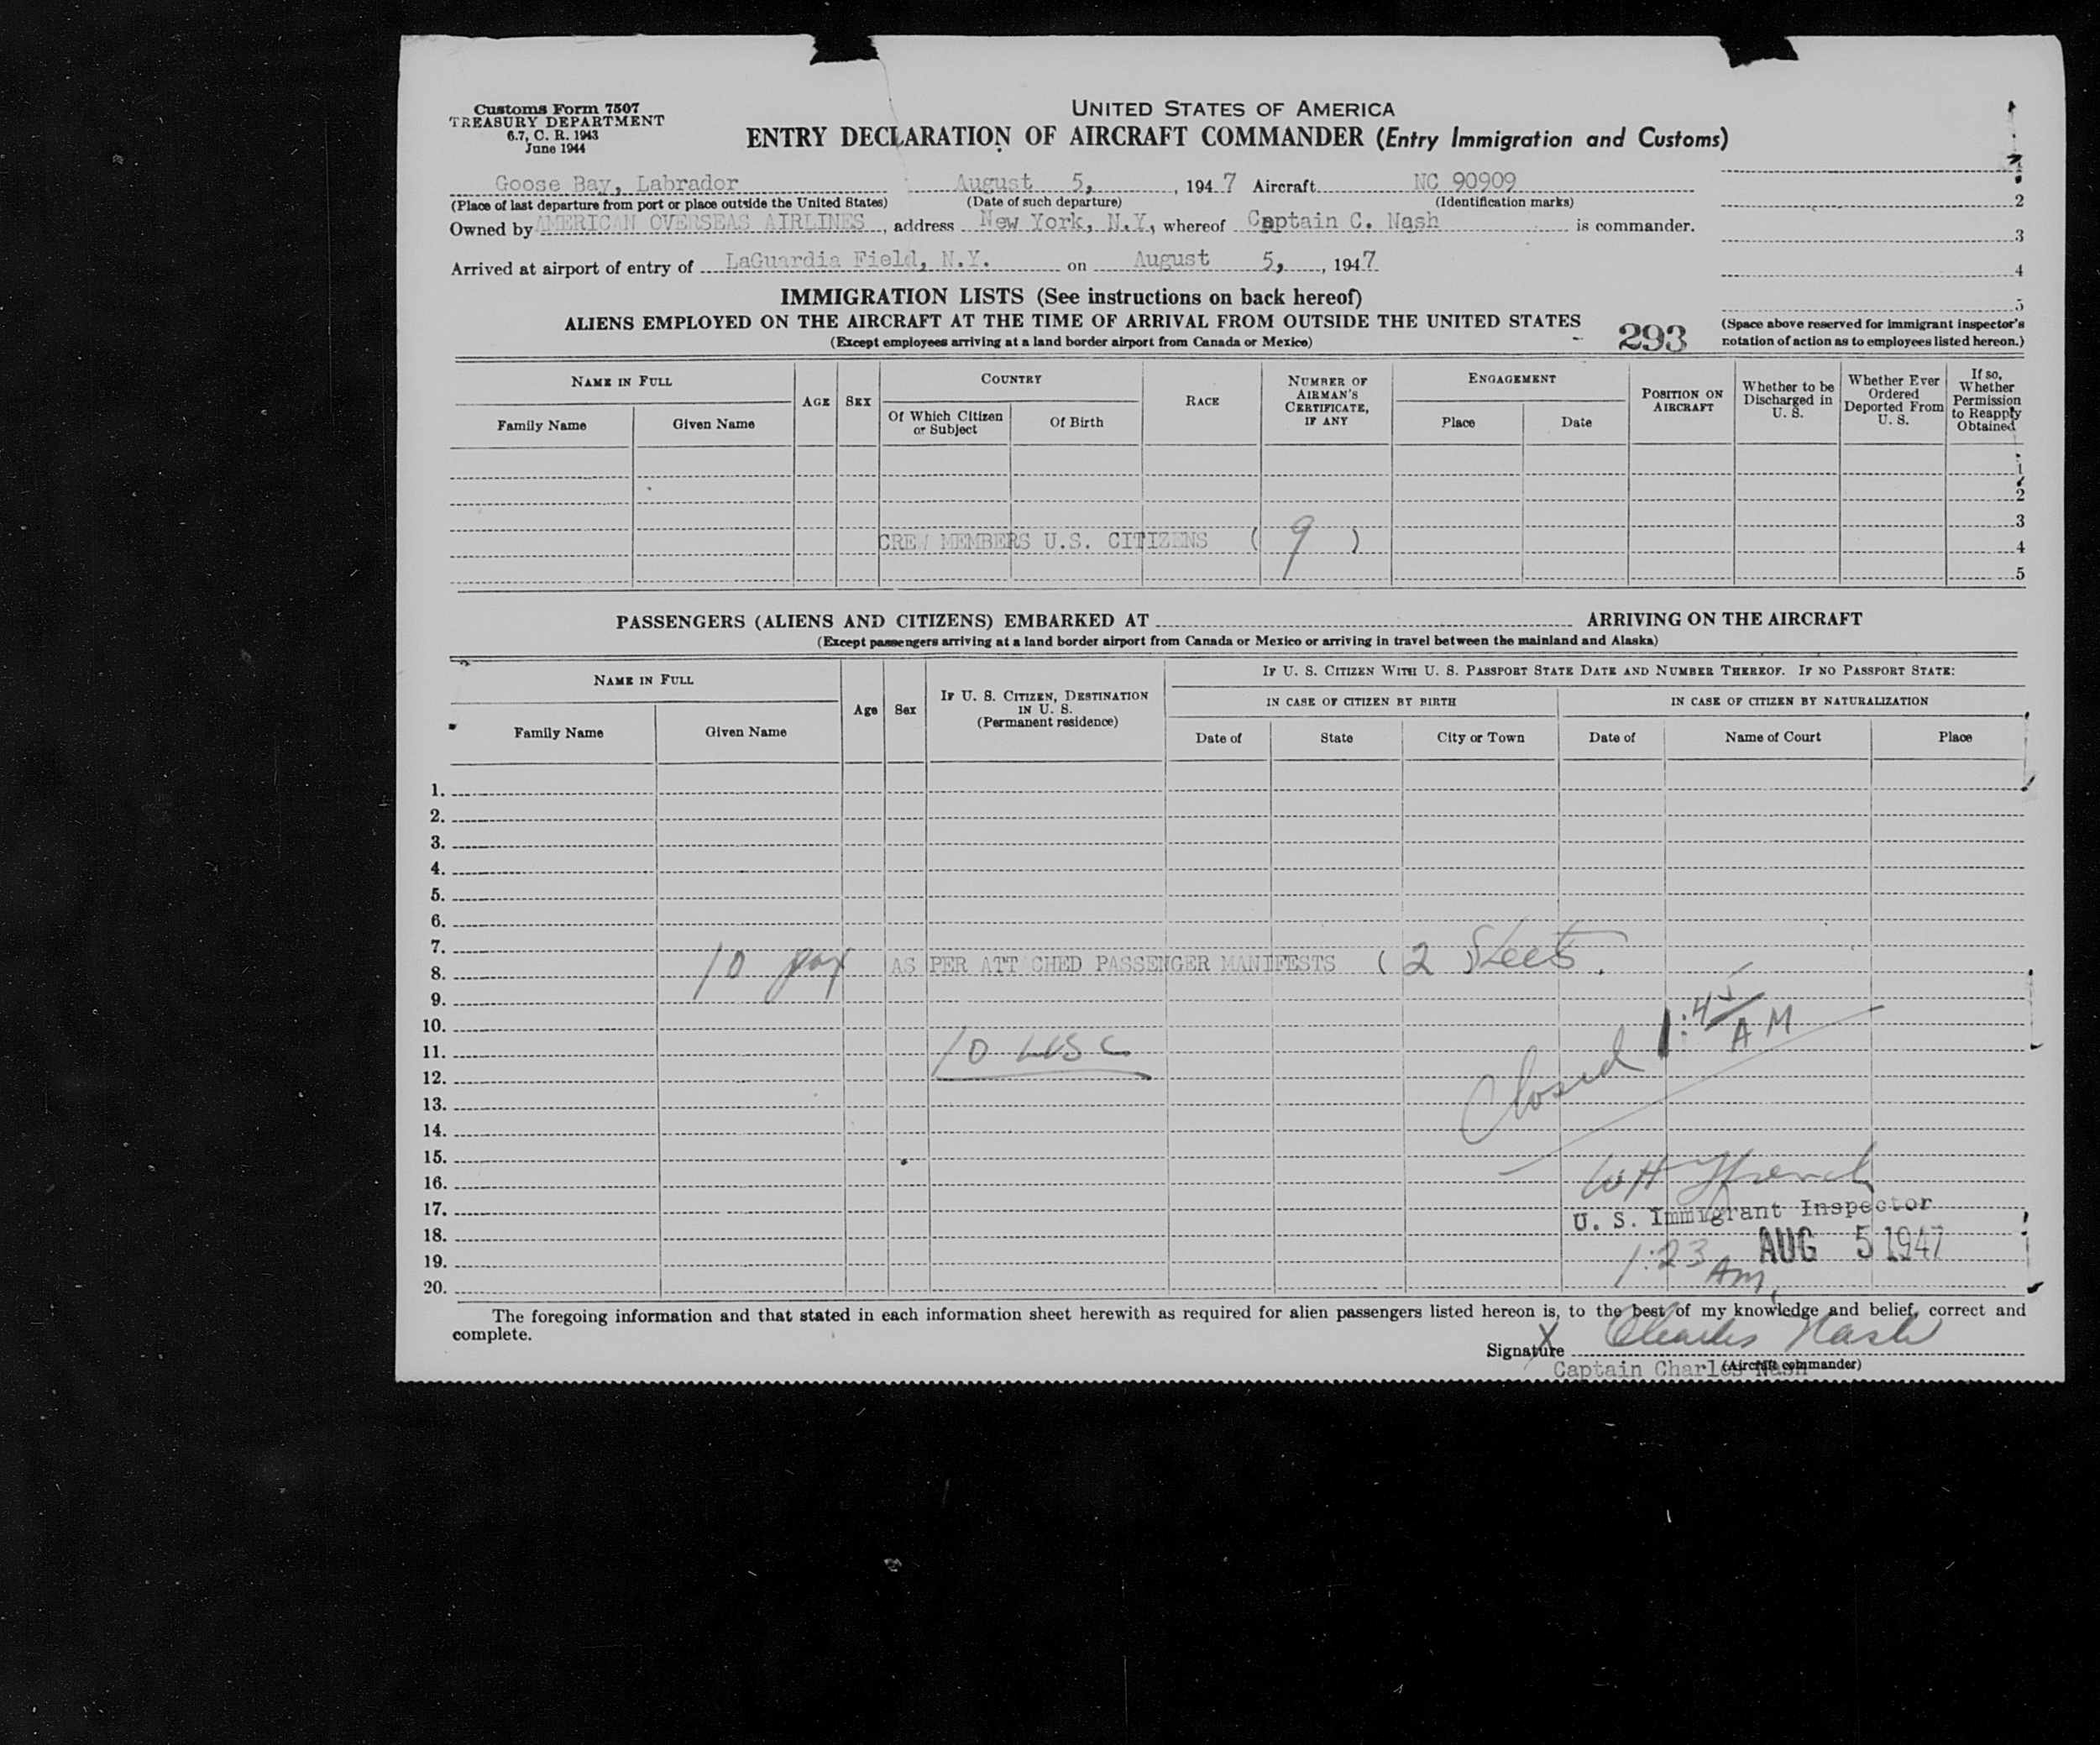 Customs Form 7507
TREASURY DEPARTMENT
6.7, C. R. 1943
June 1944
UNITED STATES OF AMERICA
ENTRY DECLARATION OF AIRCRAFT COMMANDER (Entry Immigration and Customs)
Goose Bay, Labrador August 5, , 194 7 Aircraft NC 90909
(Place of last departure from port or place outside the United States) (Date of such departure) (Identification marks)
Owned by AMERICAN OVERSEAS AIRLINES, address New York, N.Y., whereof Captain C. Nash is commander.
Arrived at airport of entry of LaGuardia Field, N.Y. on August 5, , 1947
1
2
3
4
5
(Space above reserved for immigrant inspector's
notation of action as to employees listed hereon.)
IMMIGRATION LISTS (See instructions on back hereof)
ALIENS EMPLOYED ON THE AIRCRAFT AT THE TIME OF ARRIVAL FROM OUTSIDE THE UNITED STATES
(Except employees arriving at a land border airport from Canada or Mexico)
293
NAME IN FULL
Family Name
Given Name
AGE
SEX
COUNTRY
Of Which Citizen
or Subject
Of Birth
RACE
NUMBER OF
AIRMAN'S
CERTIFICATE,
IF ANY
ENGAGEMENT
Place
Date
POSITION ON
AIRCRAFT
Whether to be
Discharged in
U. S.
Whether Ever
Ordered
Deported From
U. S.
If so,
Whether
Permission
to Reapply
Obtained
1
2
3
CREW MEMBERS U.S. CITIZENS ( 9 )
4
5
PASSENGERS (ALIENS AND CITIZENS) EMBARKED AT ARRIVING ON THE AIRCRAFT
(Except passengers arriving at a land border airport from Canada or Mexico or arriving in travel between the mainland and Alaska)
NAME IN FULL
Family Name
Given Name
Age
Sex
IF U. S. CITIZEN, DESTINATION
IN U. S.
(Permanent residence)
IF U. S. CITIZEN WITH U. S. PASSPORT STATE DATE AND NUMBER THEREOF. IF NO PASSPORT STATE:
IN CASE OF CITIZEN BY BIRTH
IN CASE OF CITIZEN BY NATURALIZATION
Date of
State
City or Town
Date of
Name of Court
Place
1.
2.
3.
4.
5.
6.
7.
8. 10 pax AS PER ATTACHED PASSENGER MANIFESTS ( 2 Sheets.
9.
10.
11. 10 USC
12.
13.
14.
15.
16.
17.
18.
19.
20.
Closed 1:45 AM
W H French
U. S. Immigrant Inspector
1:23 Am, AUG 5 1947
The foregoing information and that stated in each information sheet herewith as required for alien passengers listed hereon is, to the best of my knowledge and belief, correct and
complete.
X
Signature Charles Nash
(Aircraft commander)
Captain Charles Nash